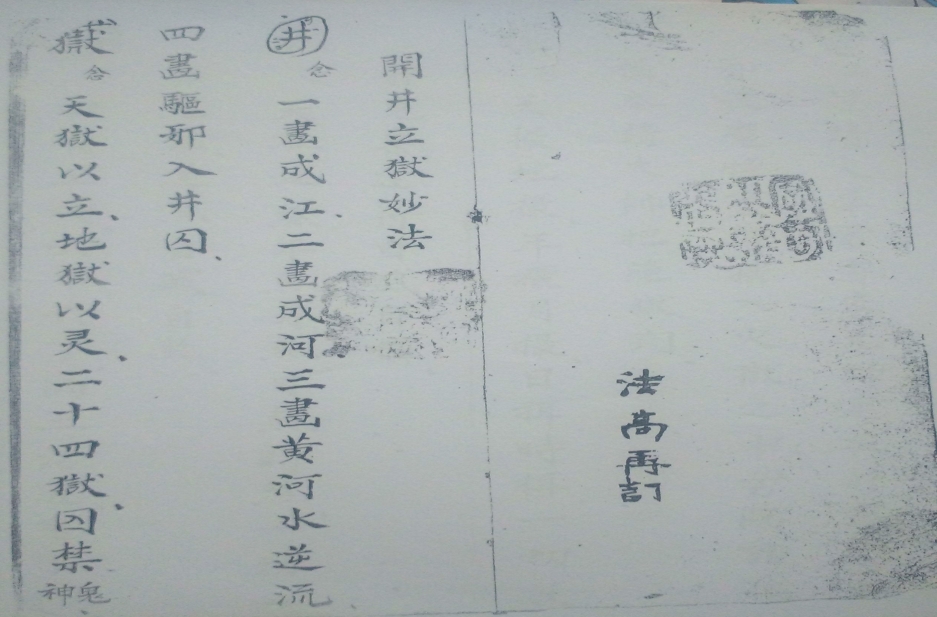 法高再訂
開井立獄妙法
井念一畫成江、二畫成河、三畫黄河水逆流、
四畫驅邪入井囚、
獄念天獄以立、地獄以灵、二十四獄囚禁鬼神、